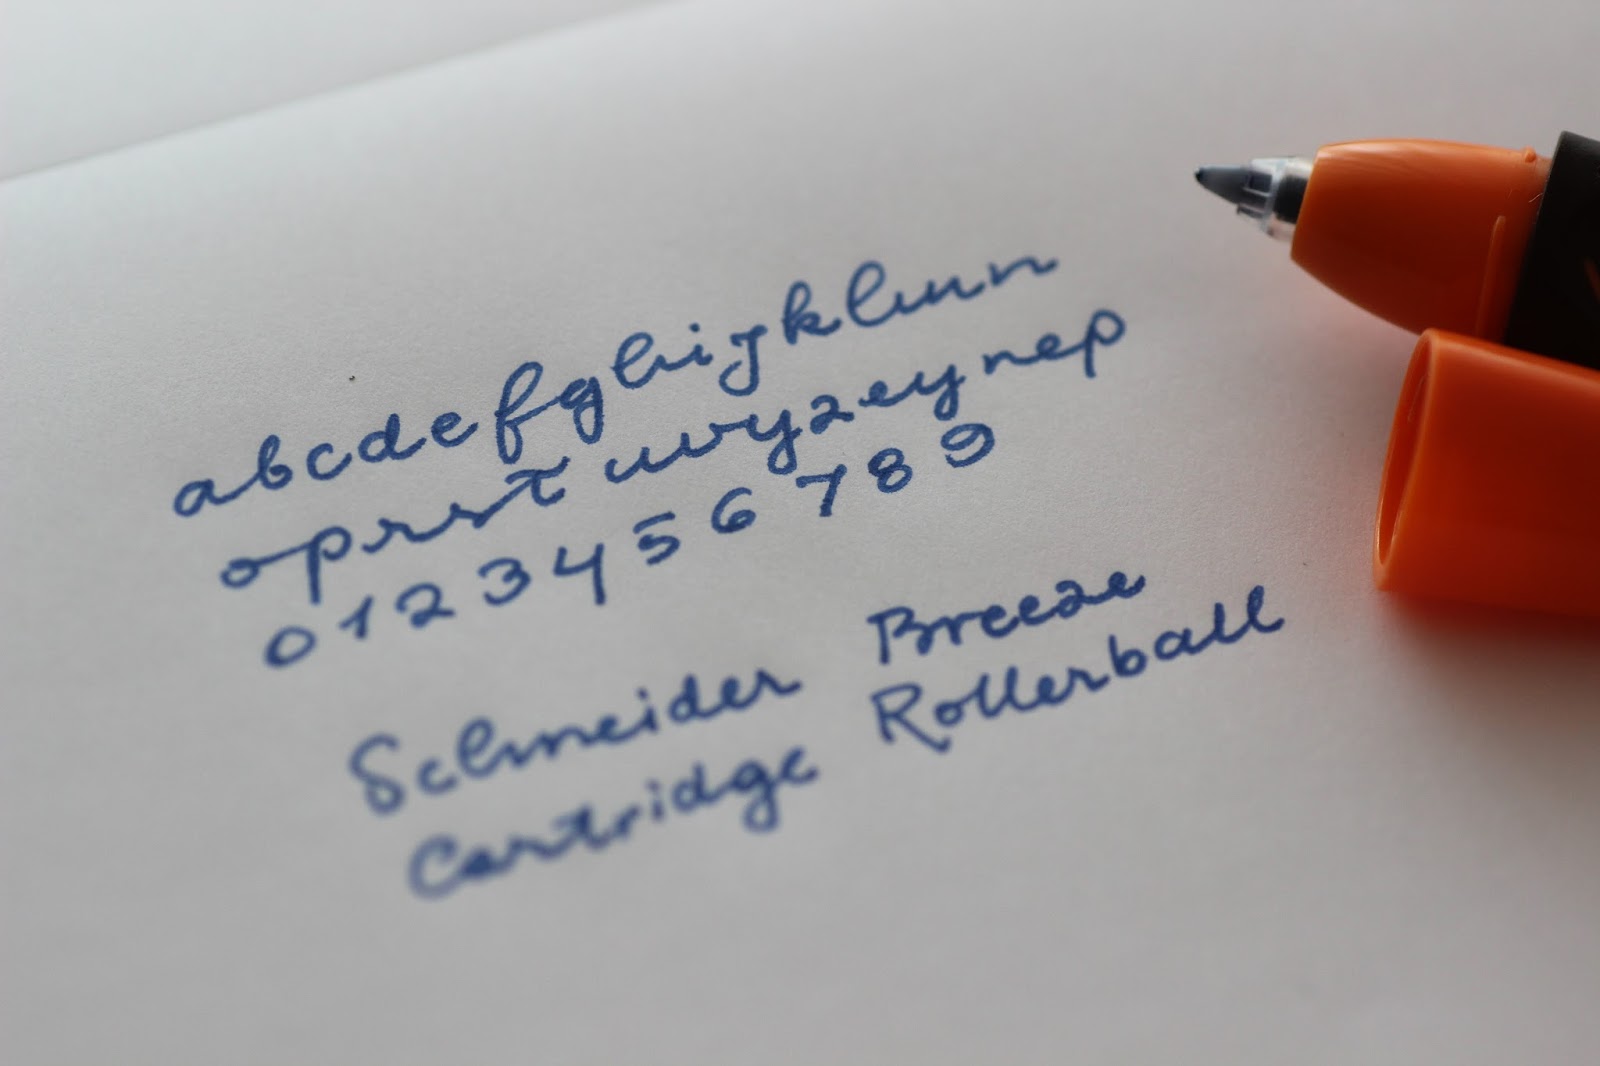 abcdefghijklmn
oprst uvyzeynep
0 1 2 3 4 5 6 7 8 9
Schneider Breeze
Cartridge Rollerball